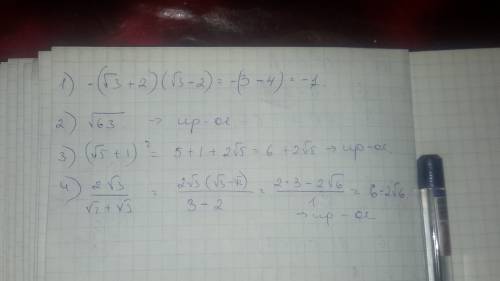 1) -(√3+2)(√3-2) = -(3-4) = -1.
2) √63 → ир-ое
3) (√5+1)² = 5+1+2√5 = 6+2√5 → ир-ое
4) 2√3/(√2+√3) = 2√3(√3-√2)/(3-2) = (2·3-2√6)/1 = 6-2√6
→ ир-ое